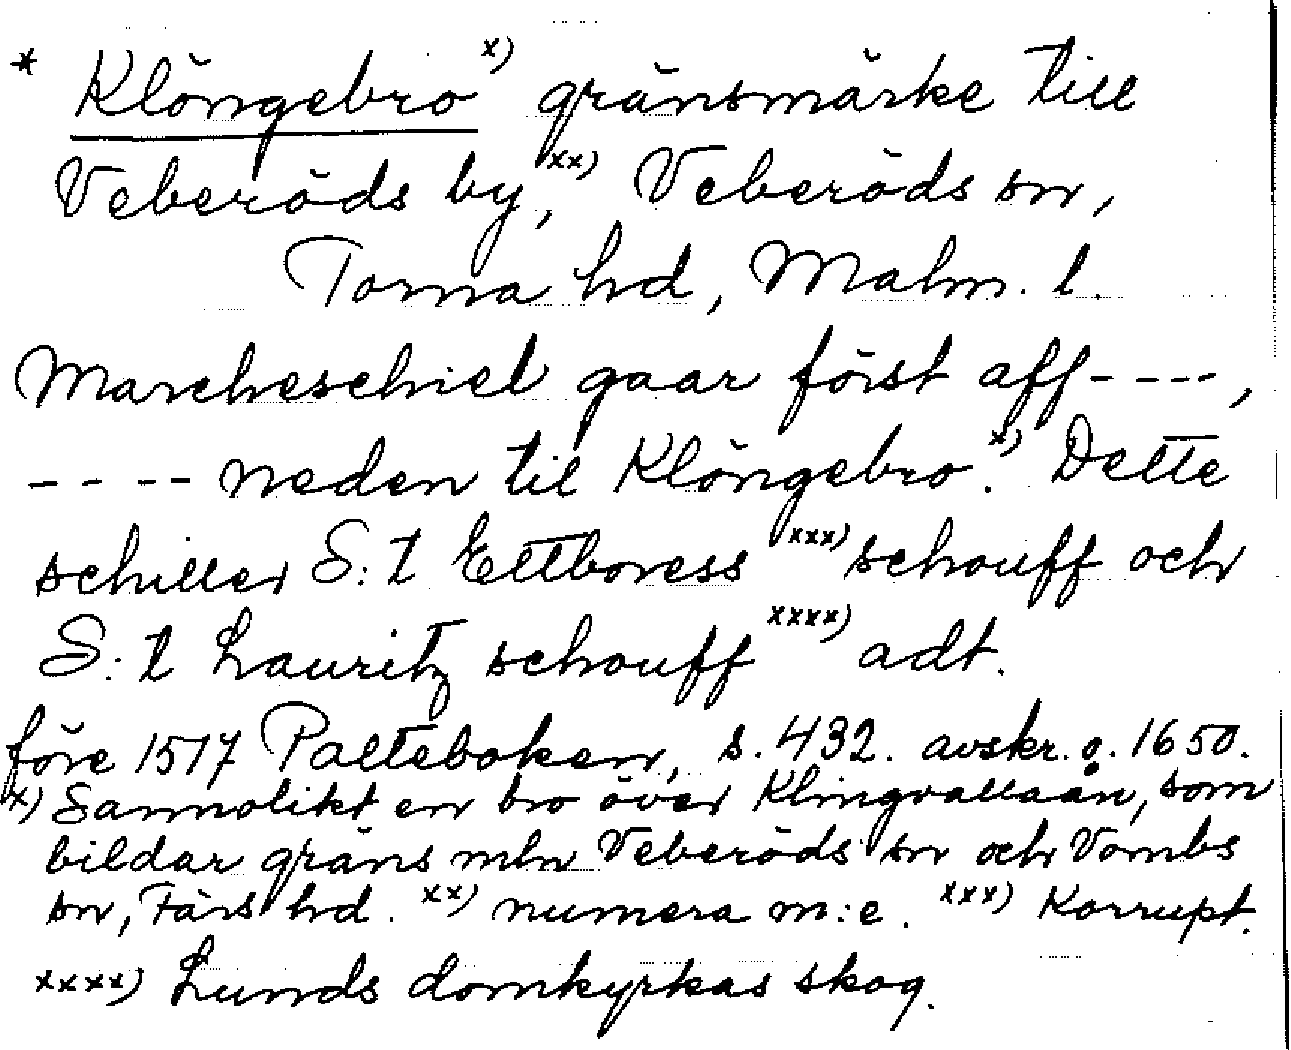 * Klöngebro x) gränsmärke till
Veberöds by, xx) Veberöds sn,
Torna hd, Malm. l.
Marcheschiel gaar först aff - - - -,
- - - - neden til Klöngebro. x) Dette
schiller S:t Eltboress xxx) schouff och
S:t Lauritz schouff xxxx) adt.
före 1517 Palteboken, s. 432. avskr. o. 1650.
x) Sannolikt en bro över Klingvallaån, som
bildar gräns mln Veberöds sn och Vombs
sn, Färs hd. xx) numera m:e. xxx) Korrupt.
xxxx) Lunds domkyrkas skog.